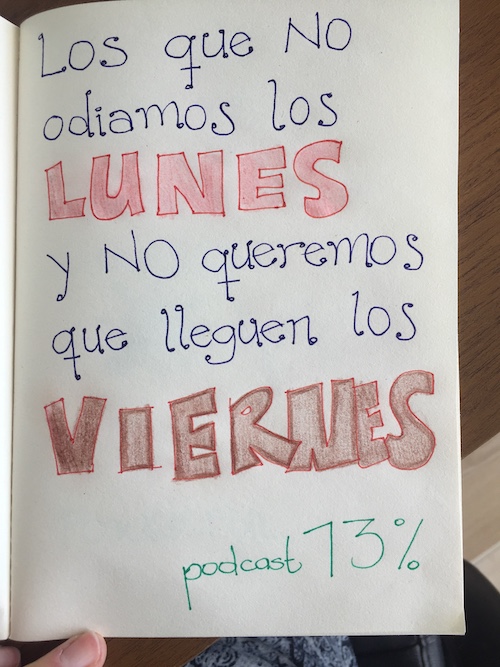 Los que NO
odiamos los
LUNES
y NO queremos
que lleguen los
VIERNES
podcast 13%